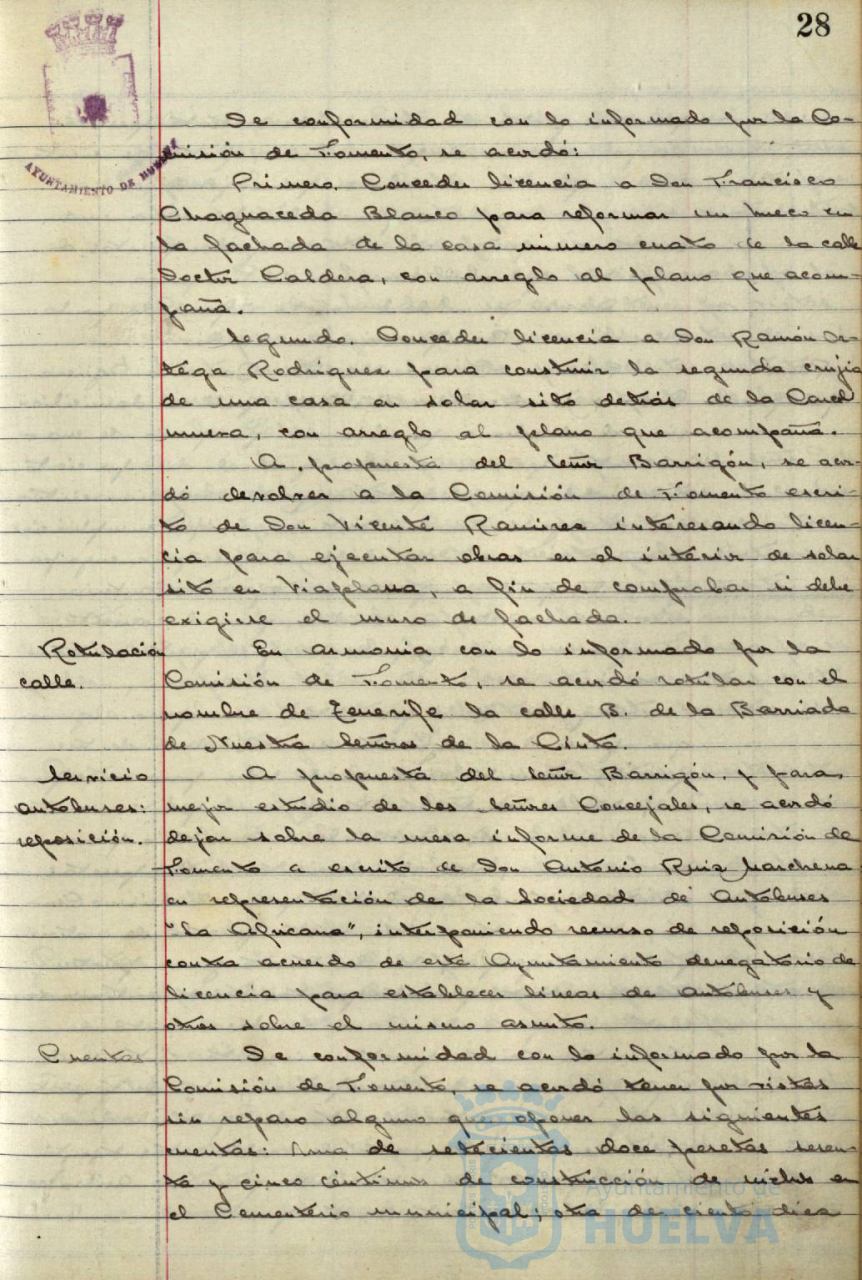 28
AYUNTAMIENTO DE HUELVA
De conformidad con lo informado por la Co-
misión de Fomento, se acordó:
Primero. Conceder licencia a Don Francisco
Chaguaceda Blanco para reformar un hueco en
la fachada de la casa número cuatro de la calle
Doctor Caldera, con arreglo al plano que acom-
paña.
Segundo. Conceder licencia a Don Ramón Or-
tega Rodríguez para construir la segunda crujía
de una casa en solar sito detrás de la Carcel
nueva, con arreglo al plano que acompaña.
A propuesta del Señor Barrigón, se acor-
dó devolver a la Comisión de Fomento escri-
to de Don Vicente Ramirez interesando licen-
cia para ejecutar obras en el interior de solar
sito en Viaplana, a fin de comprobar si debe
exigirse el muro de fachada.
Rotulación
calle.
En armonia con lo informado por la
Comisión de Fomento, se acordó rotular con el
nombre de Tenerife la calle B. de la Barriada
de Nuestra Señora de la Cinta.
Servicio
autobuses:
reposición.
A propuesta del Señor Barrigón, y para
mejor estudio de los Señores Concejales, se acordó
dejar sobre la mesa informe de la Comisión de
Fomento a escrito de Don Antonio Ruiz Marchena
en representación de la Sociedad de Autobuses
"La Africana", interponiendo recurso de reposición
contra acuerdo de este Ayuntamiento denegatorio de
licencia para establecer lineas de autobuses y
otros sobre el mismo asunto.
Cuentas
De conformidad con lo informado por la
Comisión de Fomento, se acordó tener por vistas
sin reparo alguno que oponer las siguientes
cuentas: una de setecientas doce pesetas sesen-
ta y cinco céntimos de construcción de nichos en
el Cementerio municipal; otra de ciento diez
Ayuntamiento de
HUELVA